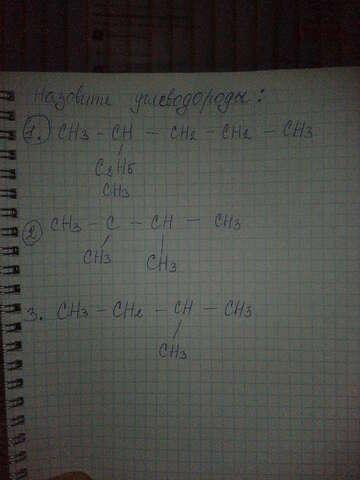 Назовите углеводороды:
1. CH3 - CH - CH2 - CH2 - CH3
C2H5
CH3
2 CH3 - C - CH - CH3
CH3 CH3
3. CH3 - CH2 - CH - CH3
CH3